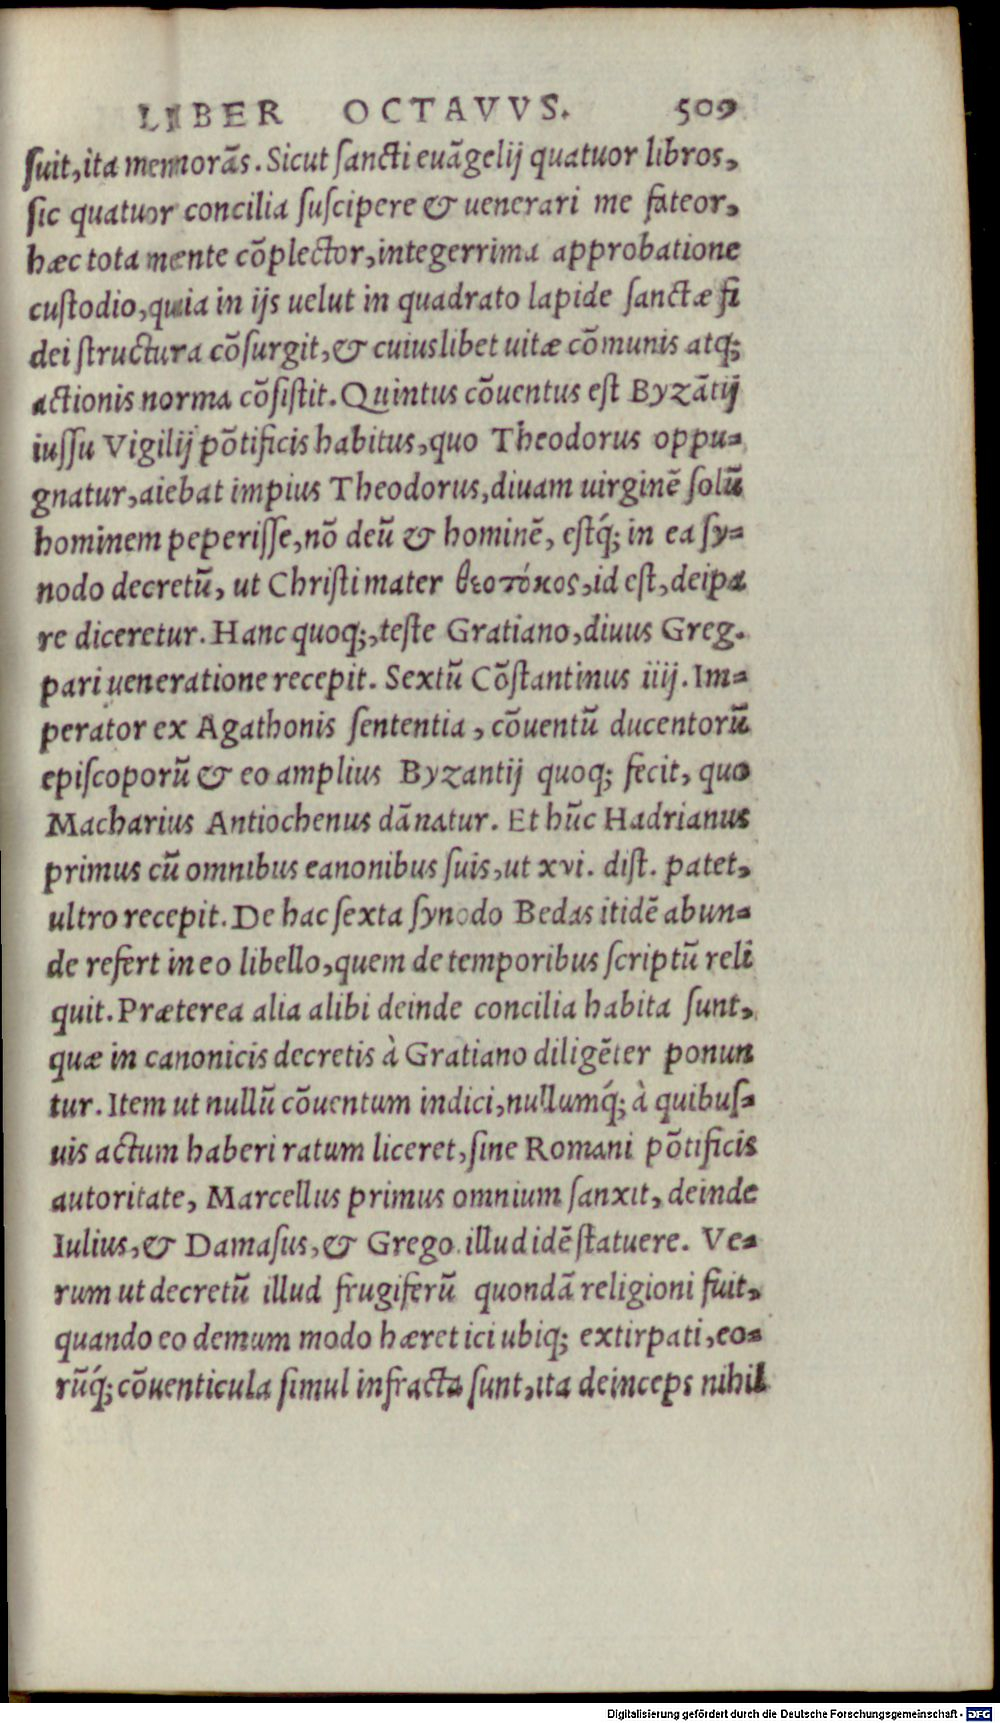 LIBER OCTAVVS. 509
ſuit, ita memorãs. Sicut ſancti euãgelij quatuor libros,
ſic quatuor concilia ſuſcipere & uenerari me fateor,
hæc tota mente cõplector, integerrima approbatione
cuſtodio, quia in ijs uelut in quadrato lapide ſanctæ fi
dei ſtructura cõſurgit, & cuiuslibet uitæ cõmunis atq;
actionis norma cõſiſtit. Quintus cõuentus eſt Byzãtij
iuſſu Vigilij põtificis habitus, quo Theodorus oppu-
gnatur, aiebat impius Theodorus, diuam uirginẽ ſolũ
hominem peperiſſe, nõ deũ & hominẽ, eſtq́; in ea ſy-
nodo decretũ, ut Chriſti mater θεοτόκος, id eſt, deipa
re diceretur. Hanc quoq;, teſte Gratiano, diuus Greg.
pari ueneratione recepit. Sextũ Cõſtantinus iiij. Im-
perator ex Agathonis ſententia, cõuentũ ducentorũ
epiſcoporũ & eo amplius Byzantij quoq; fecit, quo
Macharius Antiochenus dãnatur. Et hũc Hadrianus
primus cũ omnibus eanonibus ſuis, ut xvi. diſt. patet,
ultro recepit. De hac ſexta ſynodo Bedas itidẽ abun-
de refert in eo libello, quem de temporibus ſcriptũ reli
quit. Præterea alia alibi deinde concilia habita ſunt,
quæ in canonicis decretis à Gratiano diligẽter ponun
tur. Item ut nullũ cõuentum indici, nullumq́; à quibuſ-
uis actum haberi ratum liceret, ſine Romani põtificis
autoritate, Marcellus primus omnium ſanxit, deinde
Iulius, & Damaſus, & Grego. illud idẽ ſtatuere. Ve-
rum ut decretũ illud frugiferũ quondã religioni fuit,
quando eo demum modo hæretici ubiq; extirpati, eo-
rũq́; cõuenticula ſimul infracta ſunt, ita deinceps nihil
Digitalisierung gefördert durch die Deutsche Forschungsgemeinschaft - DFG